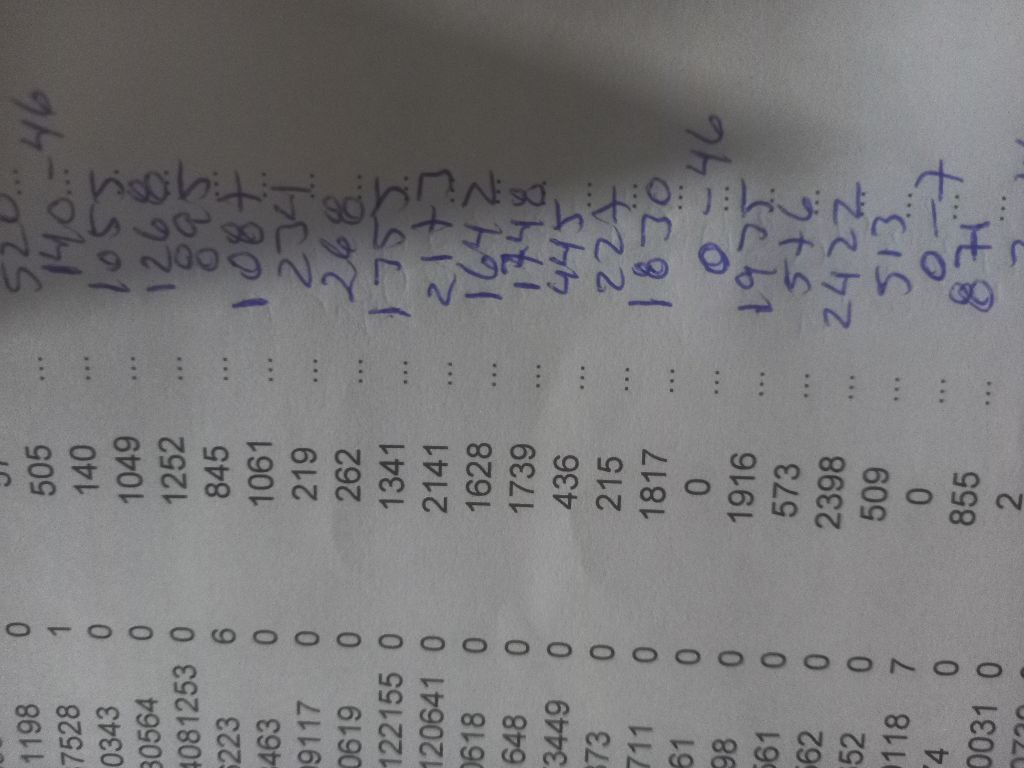 1198 0 57
7528 1 505 ... 520 ...
0343 0 140 ... 140 - 46 ...
30564 0 1049 ... 1055 ...
4081253 0 1252 ... 1268 ...
6223 6 845 ...
463 0 1061 ... 1087 ...
09117 0 219 ... 234 ...
0619 0 262 ... 268 ...
122155 0 1341 ... 1355 ...
120641 0 2141 ... 2177 ...
0618 0 1628 ... 1642 ...
648 0 1739 ... 1748 ...
3449 0 436 ... 445 ...
373 0 215 ... 227 ...
7711 0 1817 ... 1830 ...
61 0 0 ... 0 - 46 ...
98 0 1916 ... 1935 ...
561 0 573 ... 576 ...
562 0 2398 ... 2422 ...
52 0 509 ... 513 ...
0118 7 0 ... 0 - 7 ...
4 0 855 ... 871 ...
0031 0 2